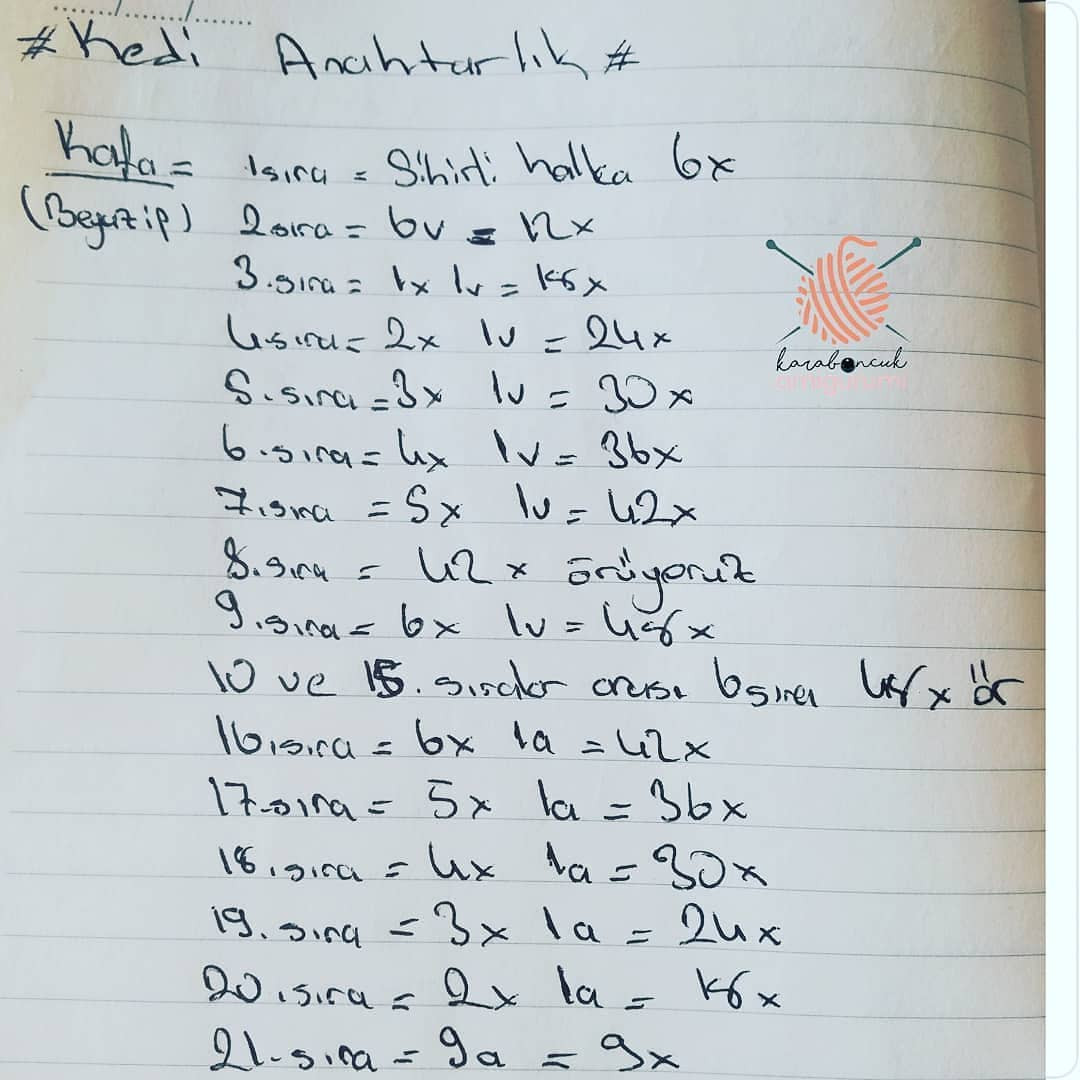 # Kedi Anahtarlık #
Kafa = 1sıra = Sihirli halka 6x
(Beyaz ip) 2sıra = 6v = 12x
3.sıra = 1x 1v = 18x
4sıra = 2x 1v = 24x
5.sıra = 3x 1v = 30x
6.sıra = 4x 1v = 36x
7.sıra = 5x 1v = 42x
8.sıra = 42x örüyoruz
9.sıra = 6x 1v = 48x
10 ve 15. sıralar arası 6sıra 48x ör
16.sıra = 6x 1a = 42x
17.sıra = 5x 1a = 36x
18.sıra = 4x 1a = 30x
19.sıra = 3x 1a = 24x
20.sıra = 2x 1a = 18x
21.sıra = 9a = 9x
karaboncuk
amigurumi